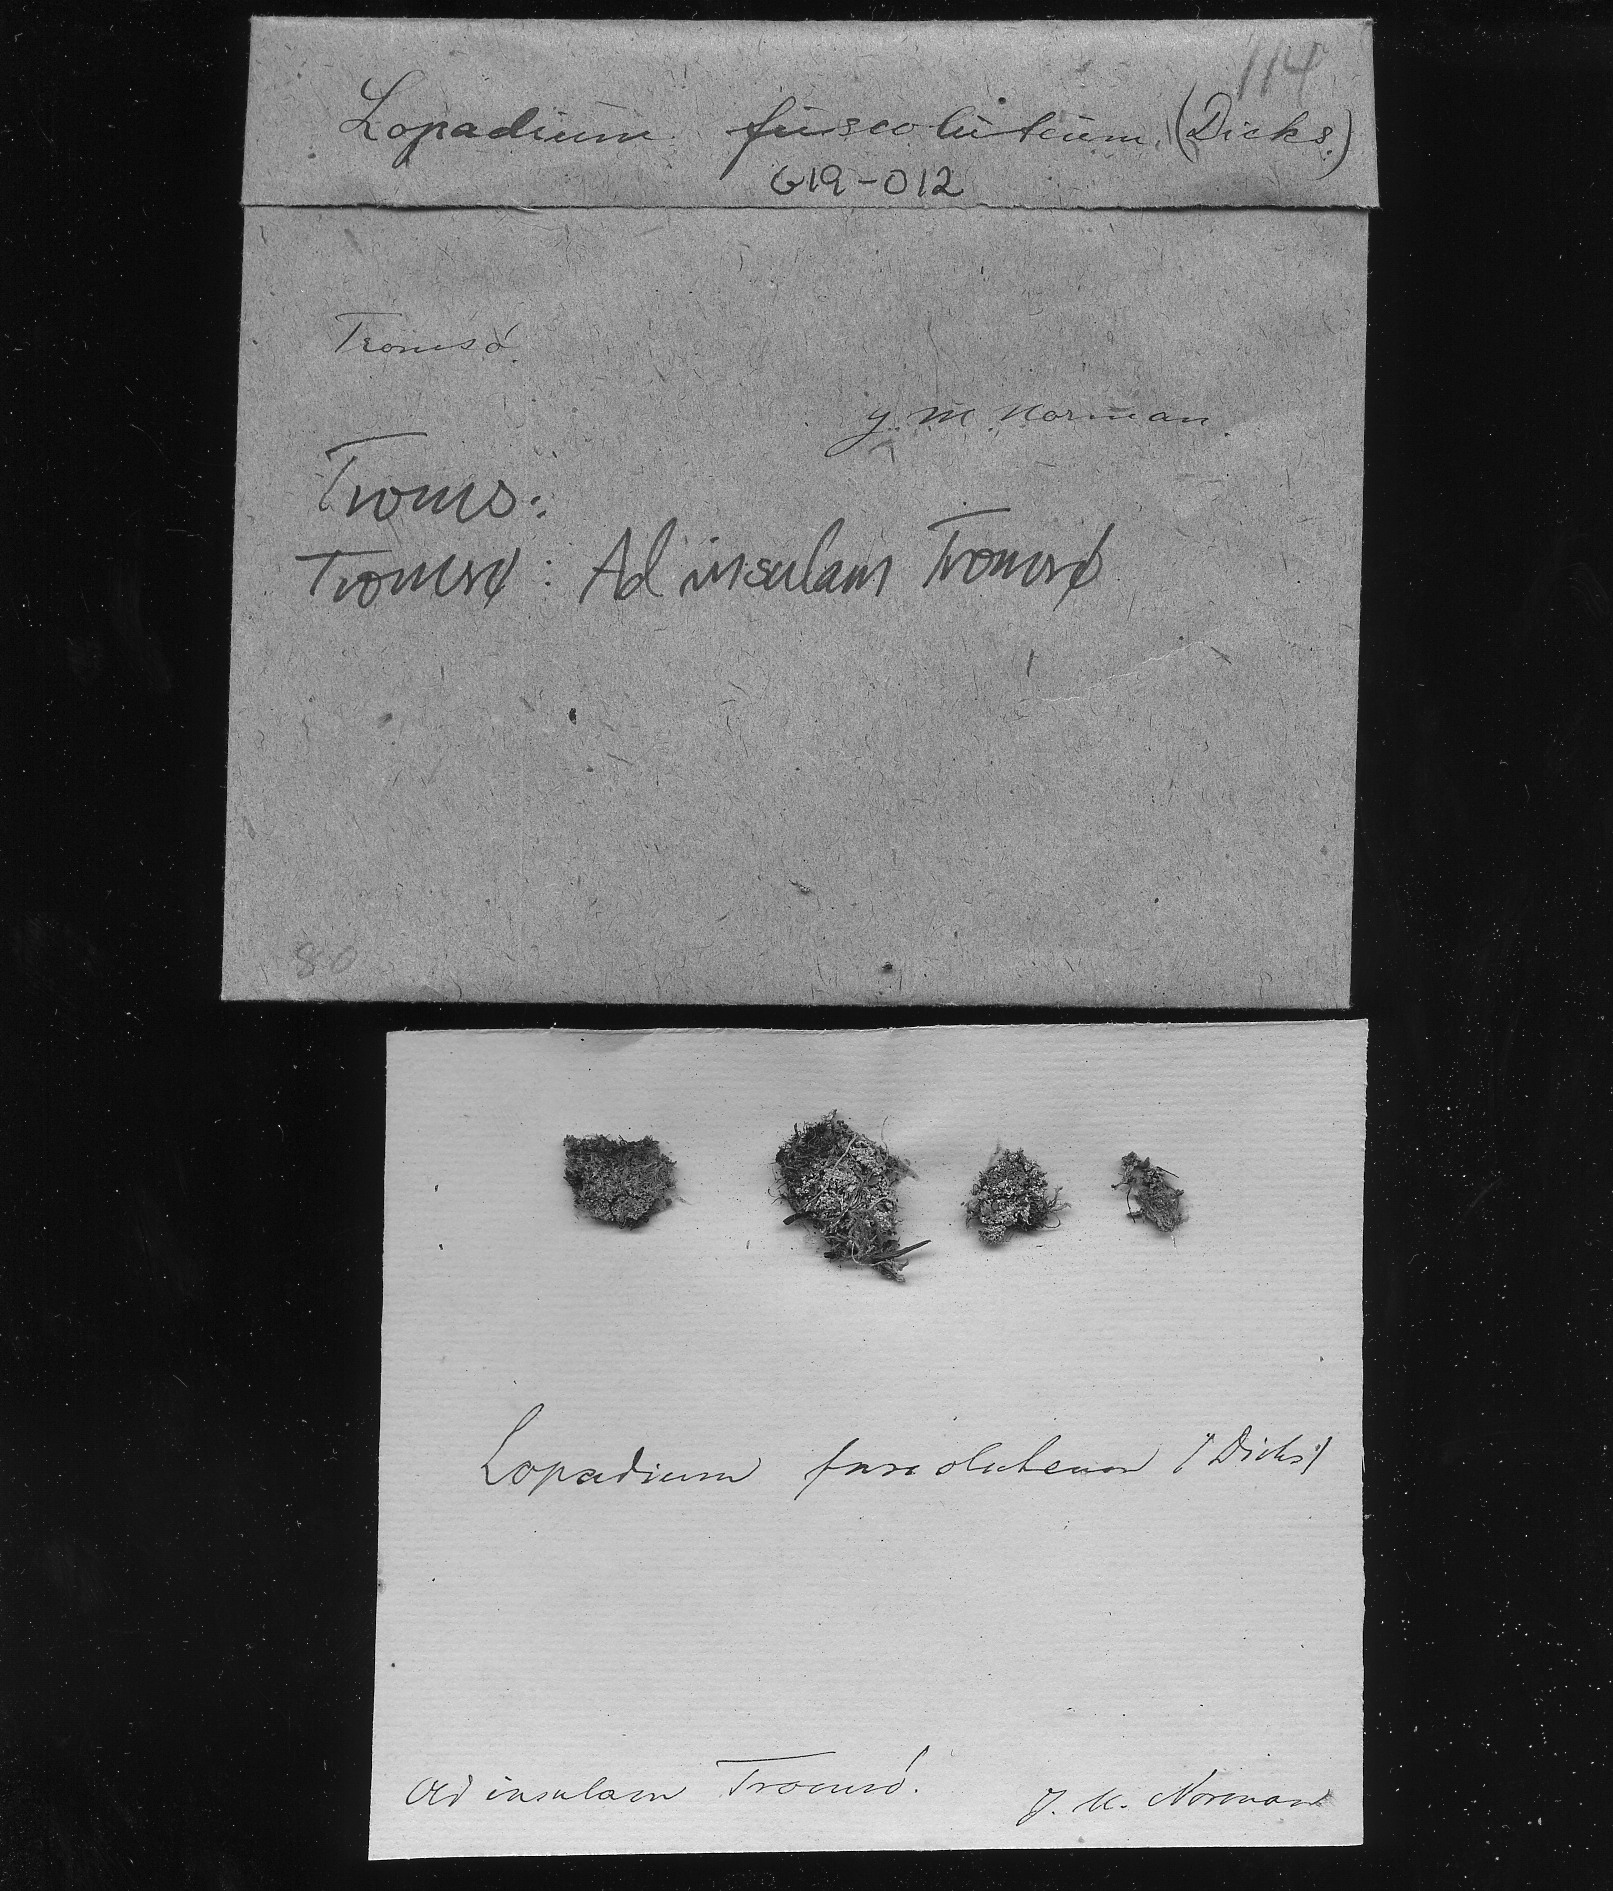 114
Lopadium fuscoluteum. (Dicks.)
G19-012
Tromsö.
J. M. Norman.
Troms:
Tromsø: Ad insulam Tromsø
80
Lopadium fuscoluteum (Dicks)
Ad insulam Tromsö.
J. M. Norman